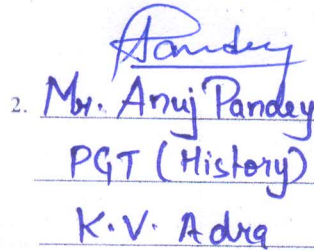 Pandey
2. Mr. Anuj Pandey
PGT (History)
K.V. Adra